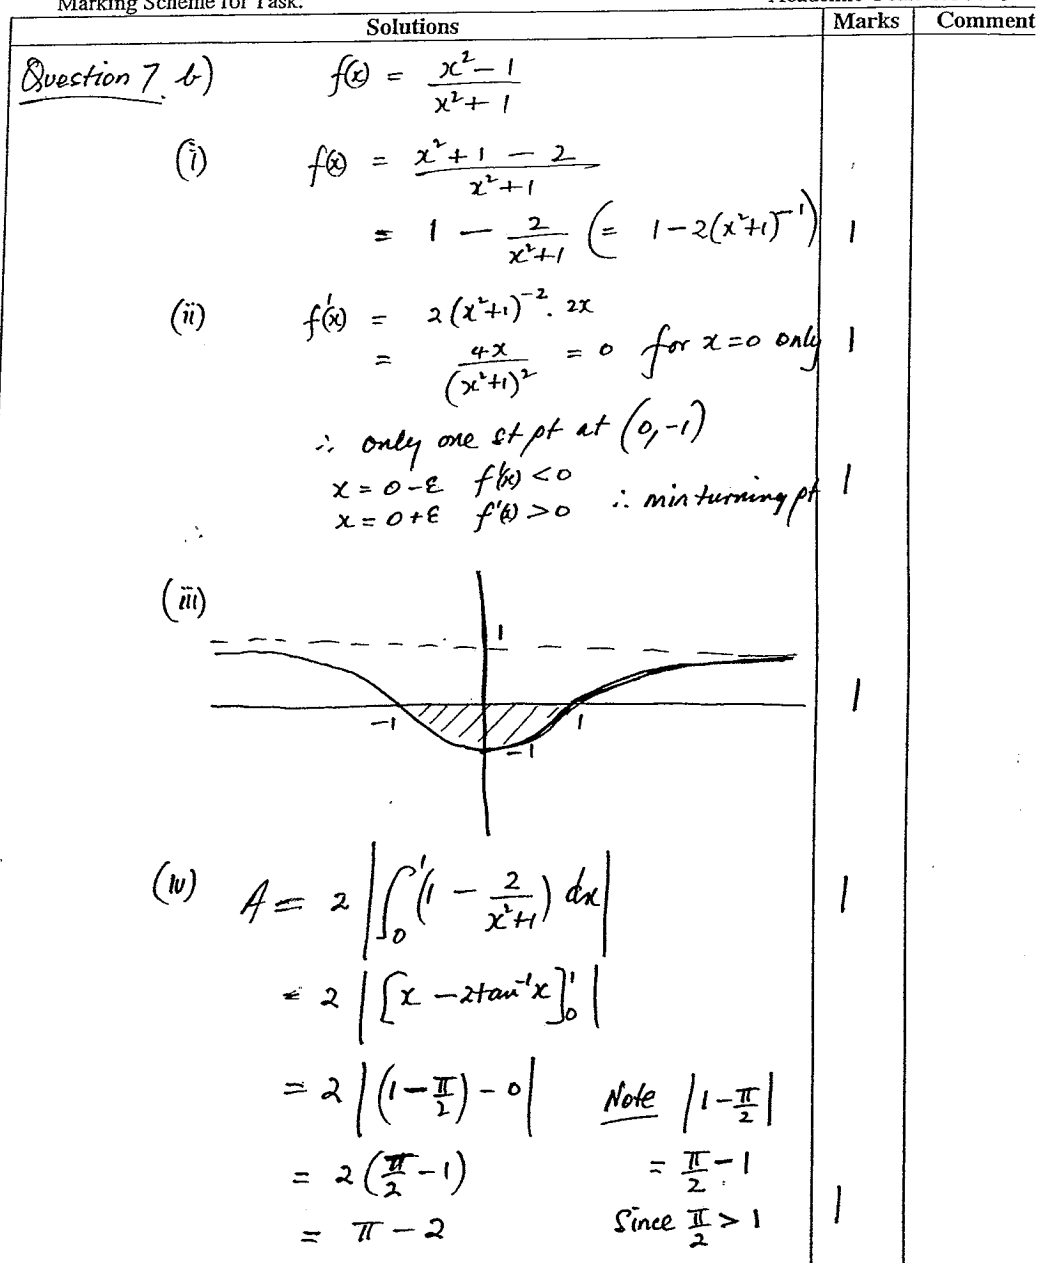 Marking Scheme for Task:
Solutions Marks Comment
Question 7. b) f(x) = \frac{x² - 1}{x² + 1}
(i) f(x) = \frac{x² + 1 - 2}{x² + 1}
= 1 - \frac{2}{x²+1} (= 1 - 2(x²+1)⁻¹) 1
(ii) f'(x) = 2(x²+1)⁻² . 2x
= \frac{4x}{(x²+1)²} = 0 for x = 0 only 1
∴ only one st pt at (0, -1)
x = 0 - ε f'(x) < 0
x = 0 + ε f'(x) > 0 ∴ min turning pt 1
(iii)
1
-1 1 1
-1
(iv) A = 2 |∫₀¹ (1 - \frac{2}{x²+1}) dx| 1
= 2 |[x - 2tan⁻¹x]₀¹|
= 2 |(1 - \frac{π}{2}) - 0| Note |1 - \frac{π}{2}|
= 2 (\frac{π}{2} - 1) = \frac{π}{2} - 1
= π - 2 Since \frac{π}{2} > 1 1